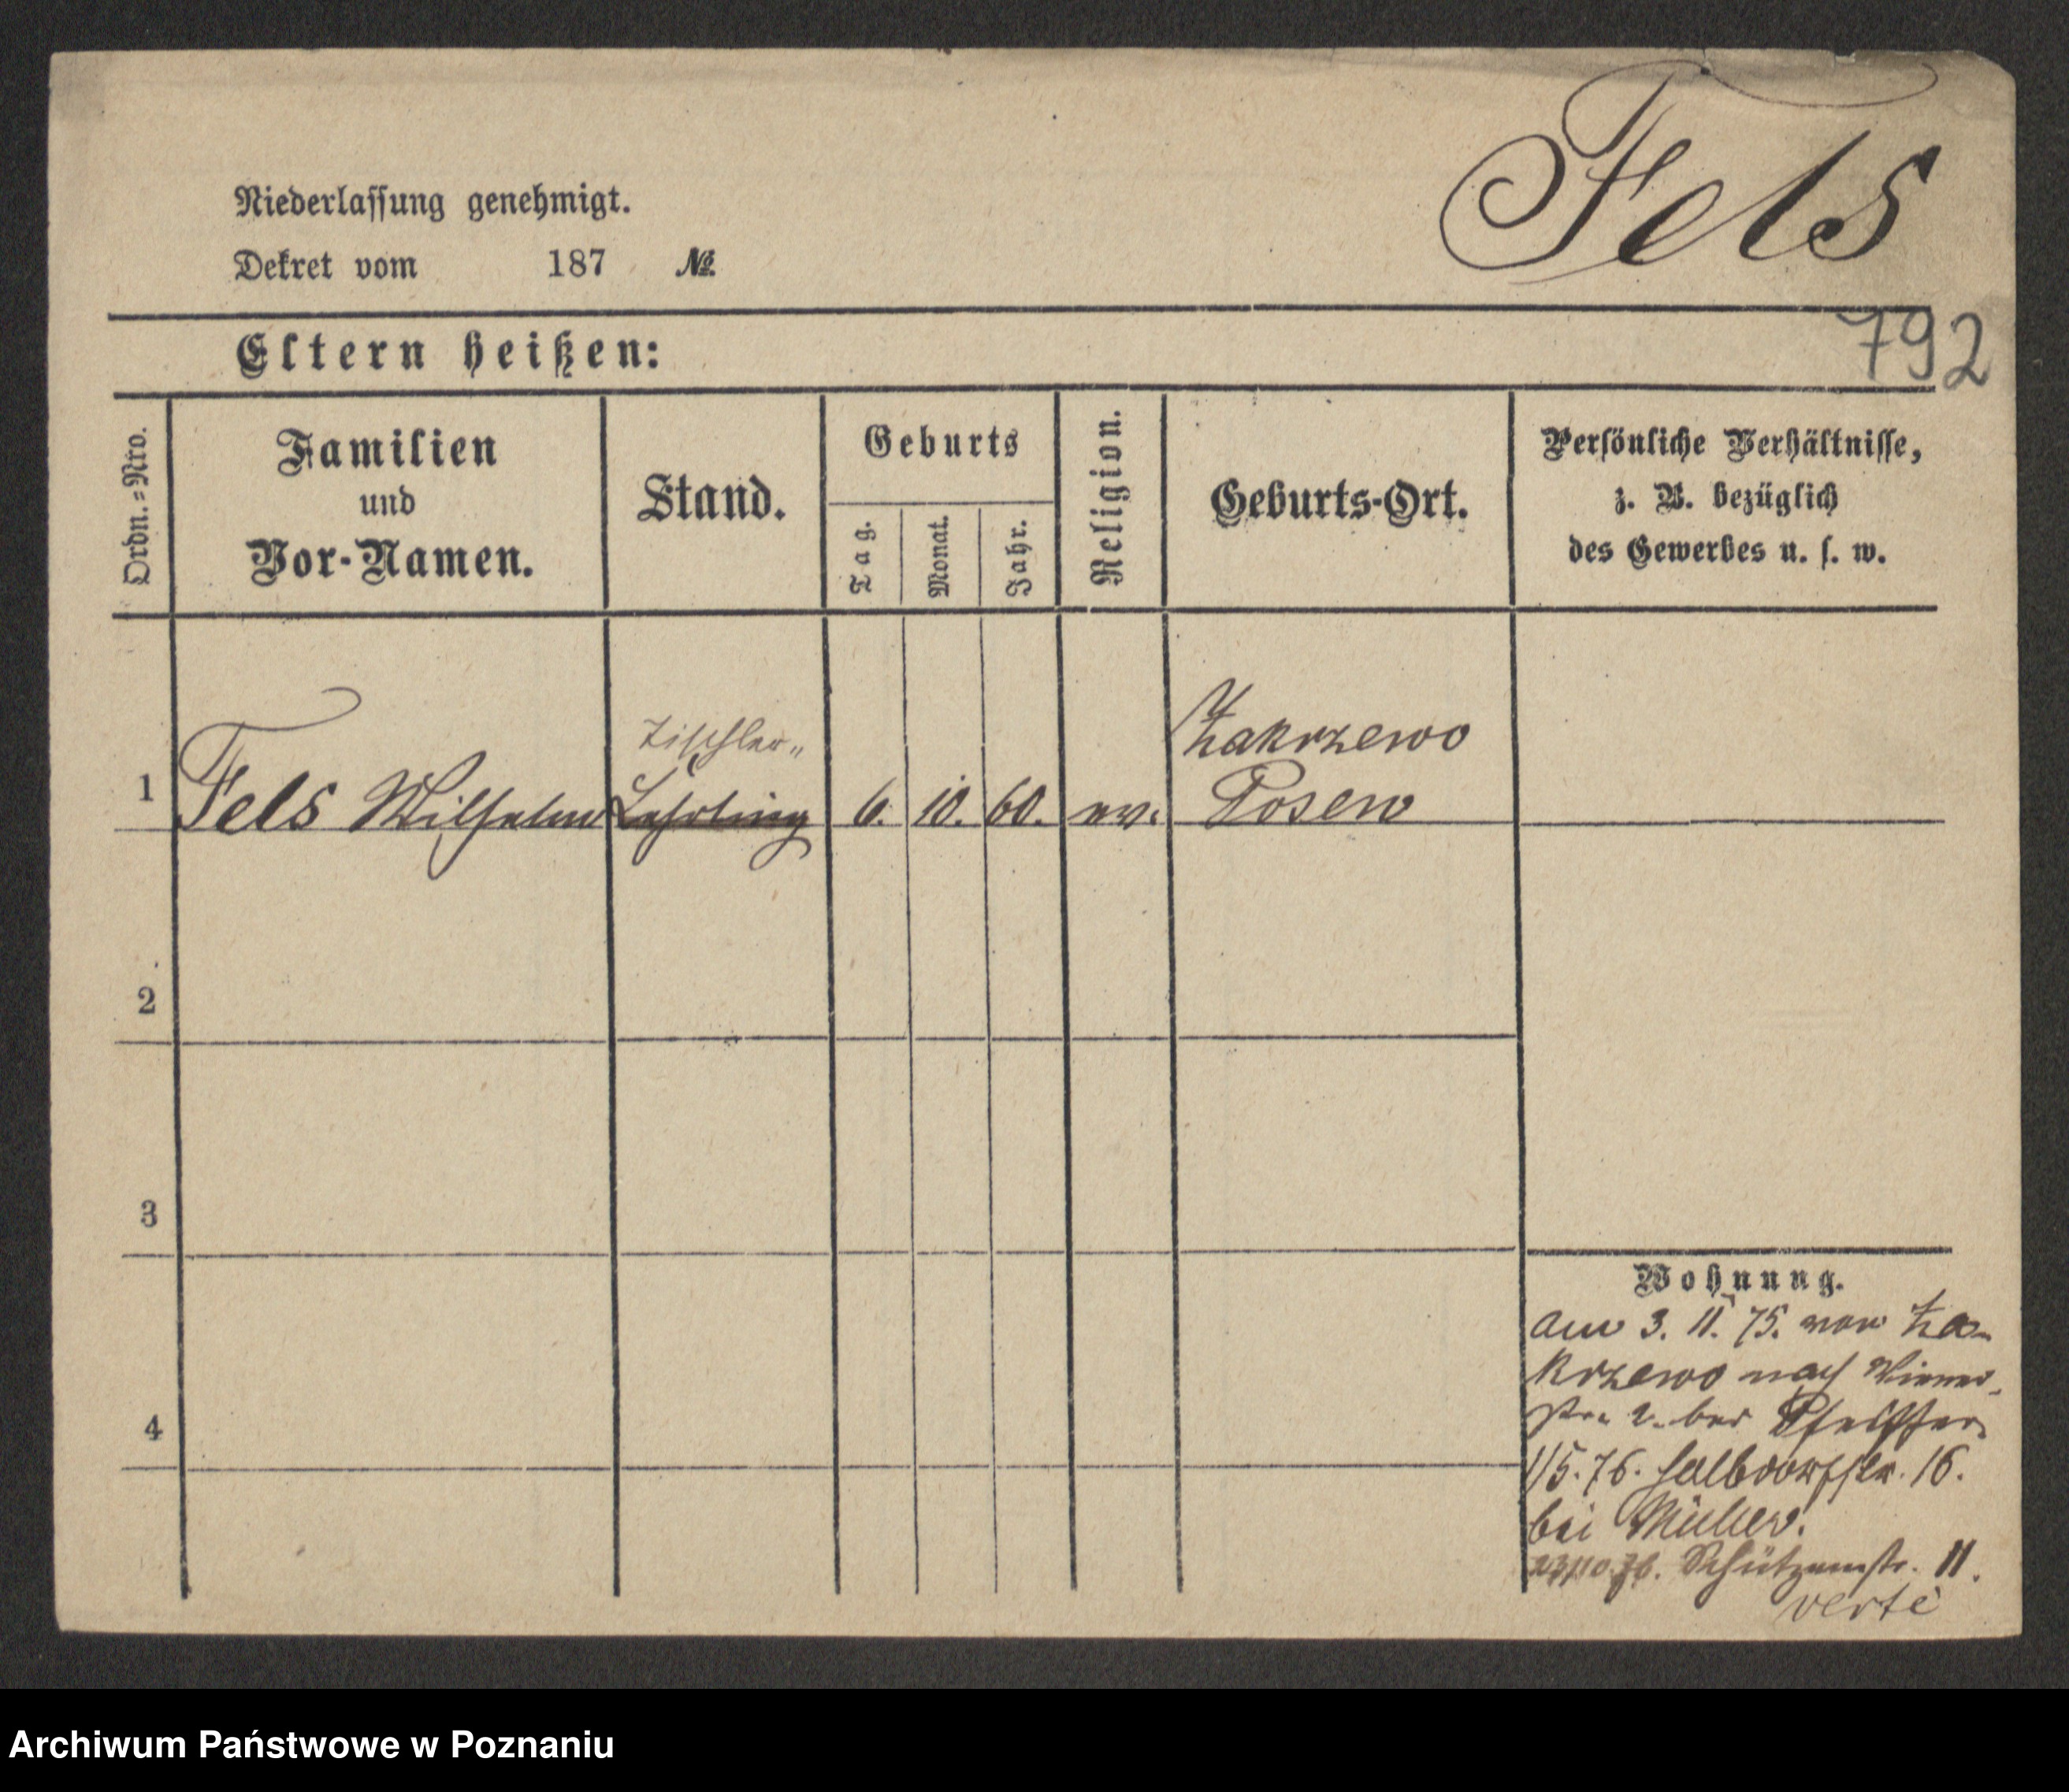 Fels
Niederlassung genehmigt.
Dekret vom 187 №
792
Eltern heißen:
Ordn.=Nro.
Familien
und
Vor-Namen.
Stand.
Geburts
Tag.
Monat.
Jahr.
Religion.
Geburts-Ort.
Persönliche Verhältnisse,
z. B. bezüglich
des Gewerbes u. s. w.
Tischler"
Zakrzewo
1 Fels Wilhelm Lehrling 6. 10. 60. ev. Posen
2
3
4
Wohnung.
am 3. 11. 75. von Za-
krzewo nach Wiener-
str. 2. bei Pfeiffer
1/5. 76. Halbdorfstr. 16.
bei Müller.
Schützenstr. 11.
verte
Archiwum Państwowe w Poznaniu